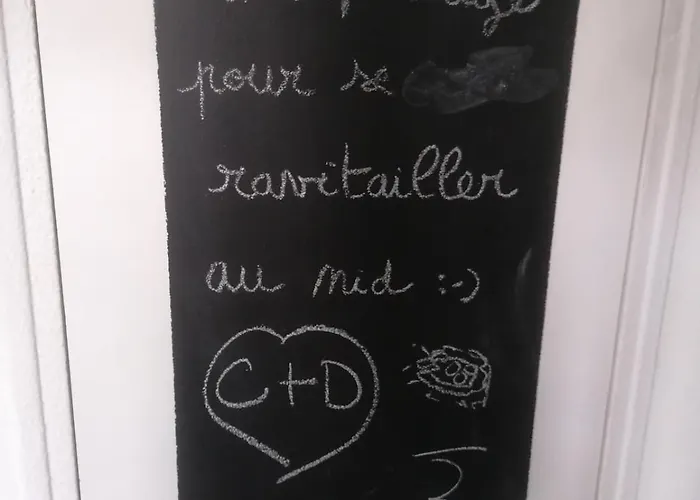 pour se
ravitailler
au nid :-)
C+D